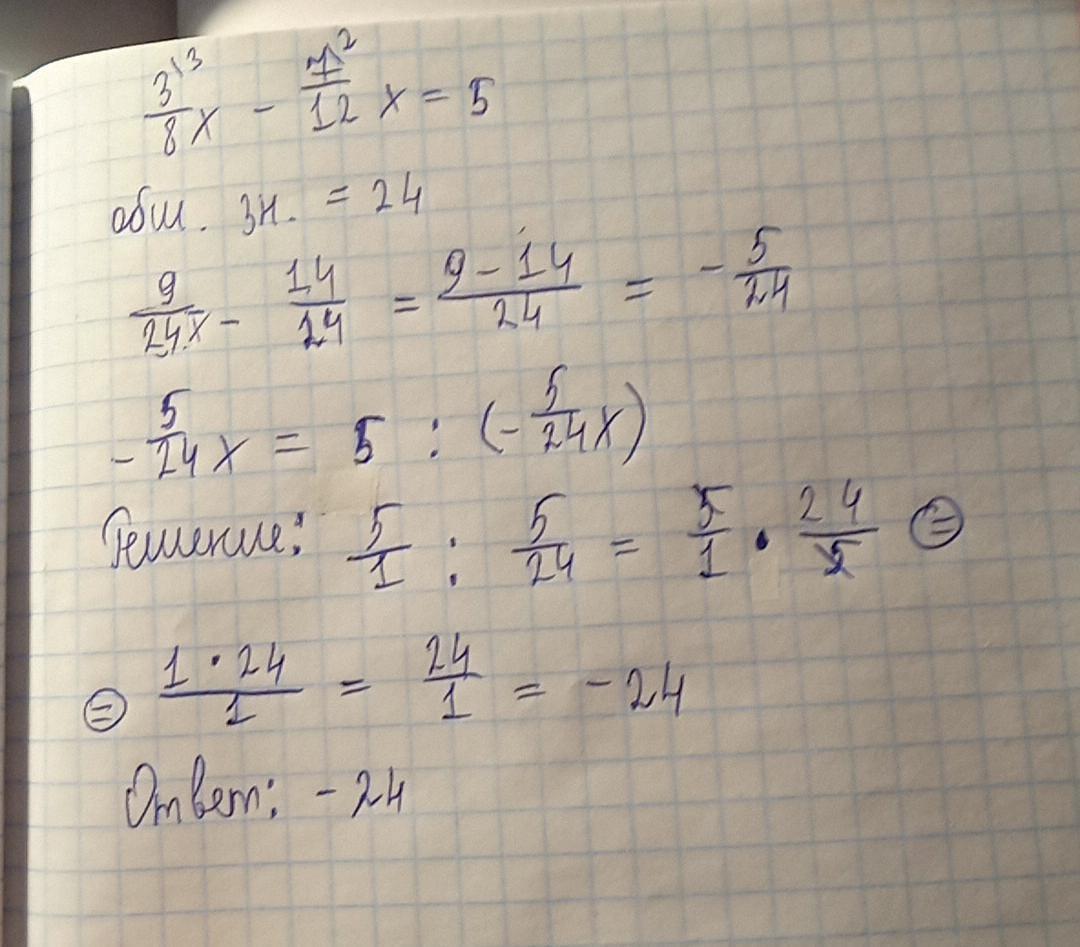 3\3/8 x - 7\2/12 x = 5
общ. зн. = 24
9/24x - 14/24 = 9-14/24 = -5/24
-5/24 x = 5 : (-5/24 x)
Решение: 5/1 : 5/24 = 5/1 · 24/5 =
= 1·24/1 = 24/1 = -24
Ответ: -24